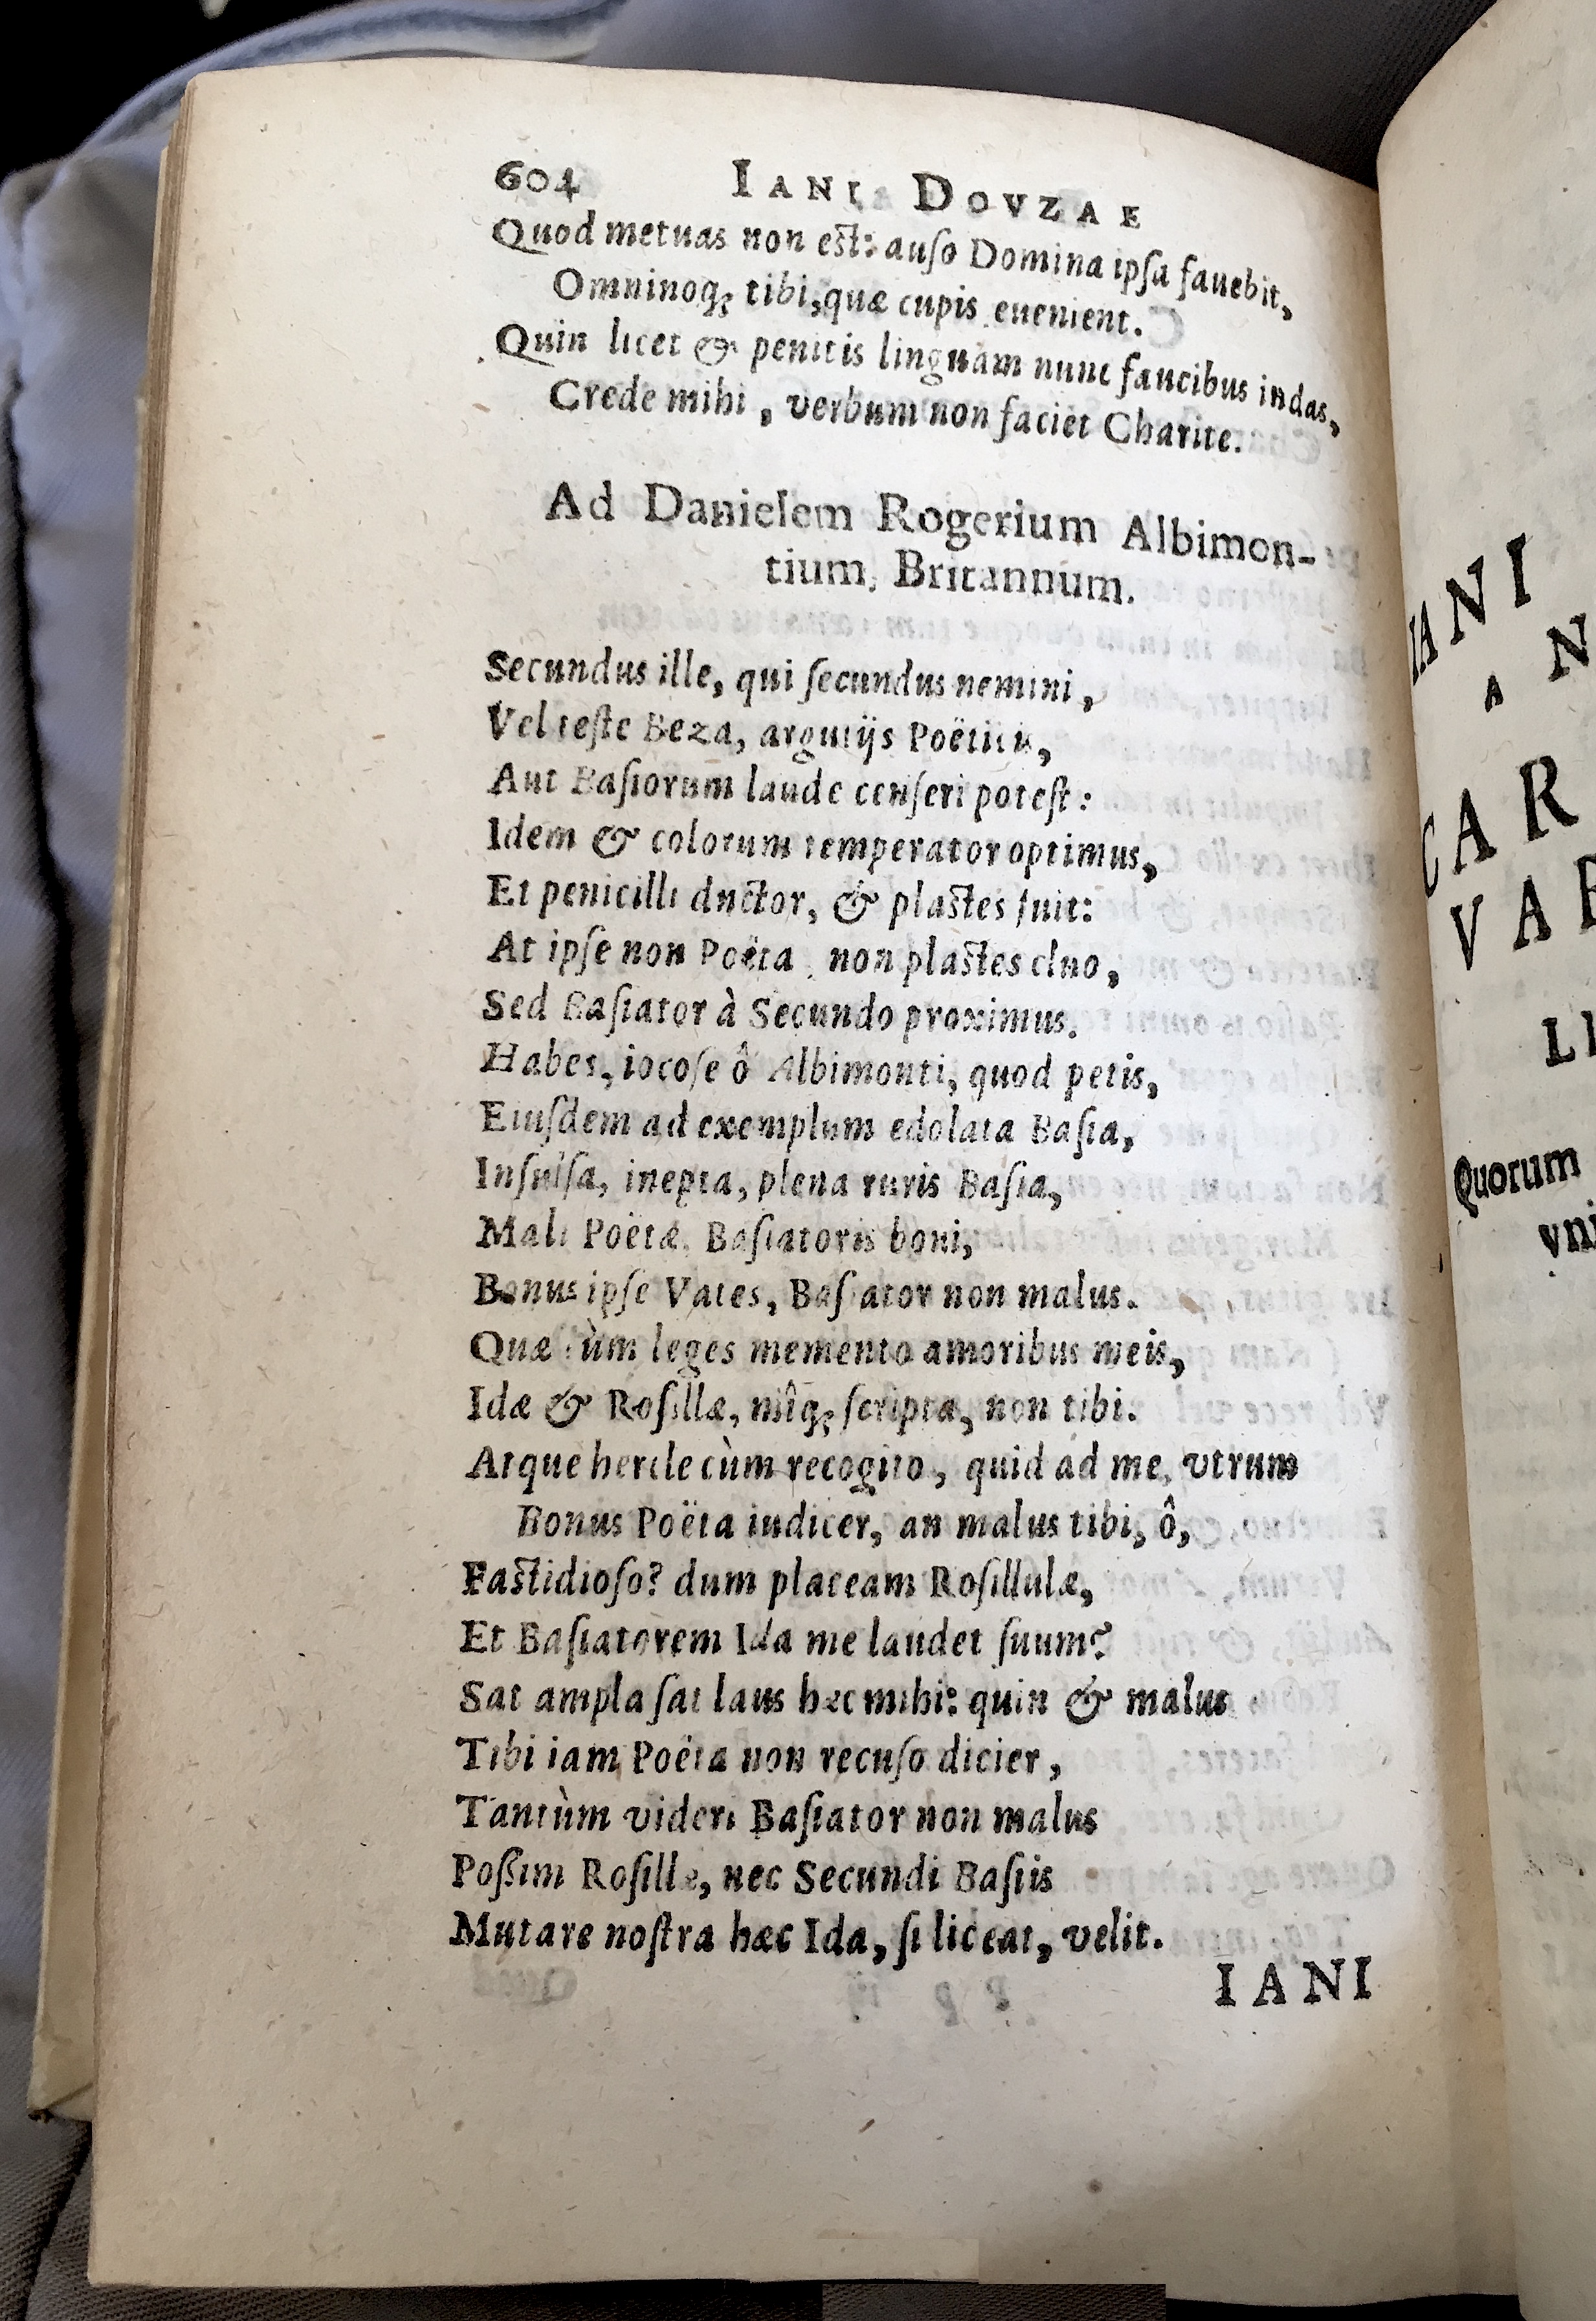 604 IANI DOVZAE
Quod metuas non est: auſo Domina ipſa fauebit,
Omninoq; tibi, quæ cupis euenient.
Quin licet & penitis linguam nunc faucibus indas,
Crede mihi, verbum non faciet Charite.
Ad Danielem Rogerium Albimon-
tium, Britannum.
Secundus ille, qui ſecundus nemini,
Vel teſte Beza, argutijs Poëticis,
Aut Baſiorum laude cenſeri poteſt:
Idem & colorum temperator optimus,
Et penicilli ductor, & plastes fuit:
At ipſe non Poëta, non plastes cluo,
Sed Baſiator à Secundo proximus.
Habes, iocoſe ô Albimonti, quod petis,
Eiuſdem ad exemplum edolata Baſia,
Inſulſa, inepta, plena ruris Baſia,
Mali Poëtæ, Baſiatoris boni,
Bonus ipſe Vates, Baſiator non malus.
Quæ cùm leges memento amoribus meis,
Idæ & Roſillæ, mîq; ſcripta, non tibi.
Atque hercle cùm recogito, quid ad me, vtrum
Bonus Poëta iudicer, an malus tibi, ô,
Fastidioſo? dum placeam Roſillulæ,
Et Baſiatorem Ida me laudet ſuum?
Sat ampla ſat laus hæc mihi: quin & malus
Tibi iam Poëta non recuſo dicier,
Tantùm videri Baſiator non malus
Poßim Roſillæ, nec Secundi Baſiis
Mutare noſtra hæc Ida, ſi liceat, velit.
IANI
IANI
A N
CAR
VAR
LI
Quorum
vni